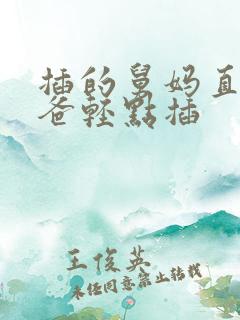 插的舅妈直
爸轻點插
王俊英
未经同意禁止转载